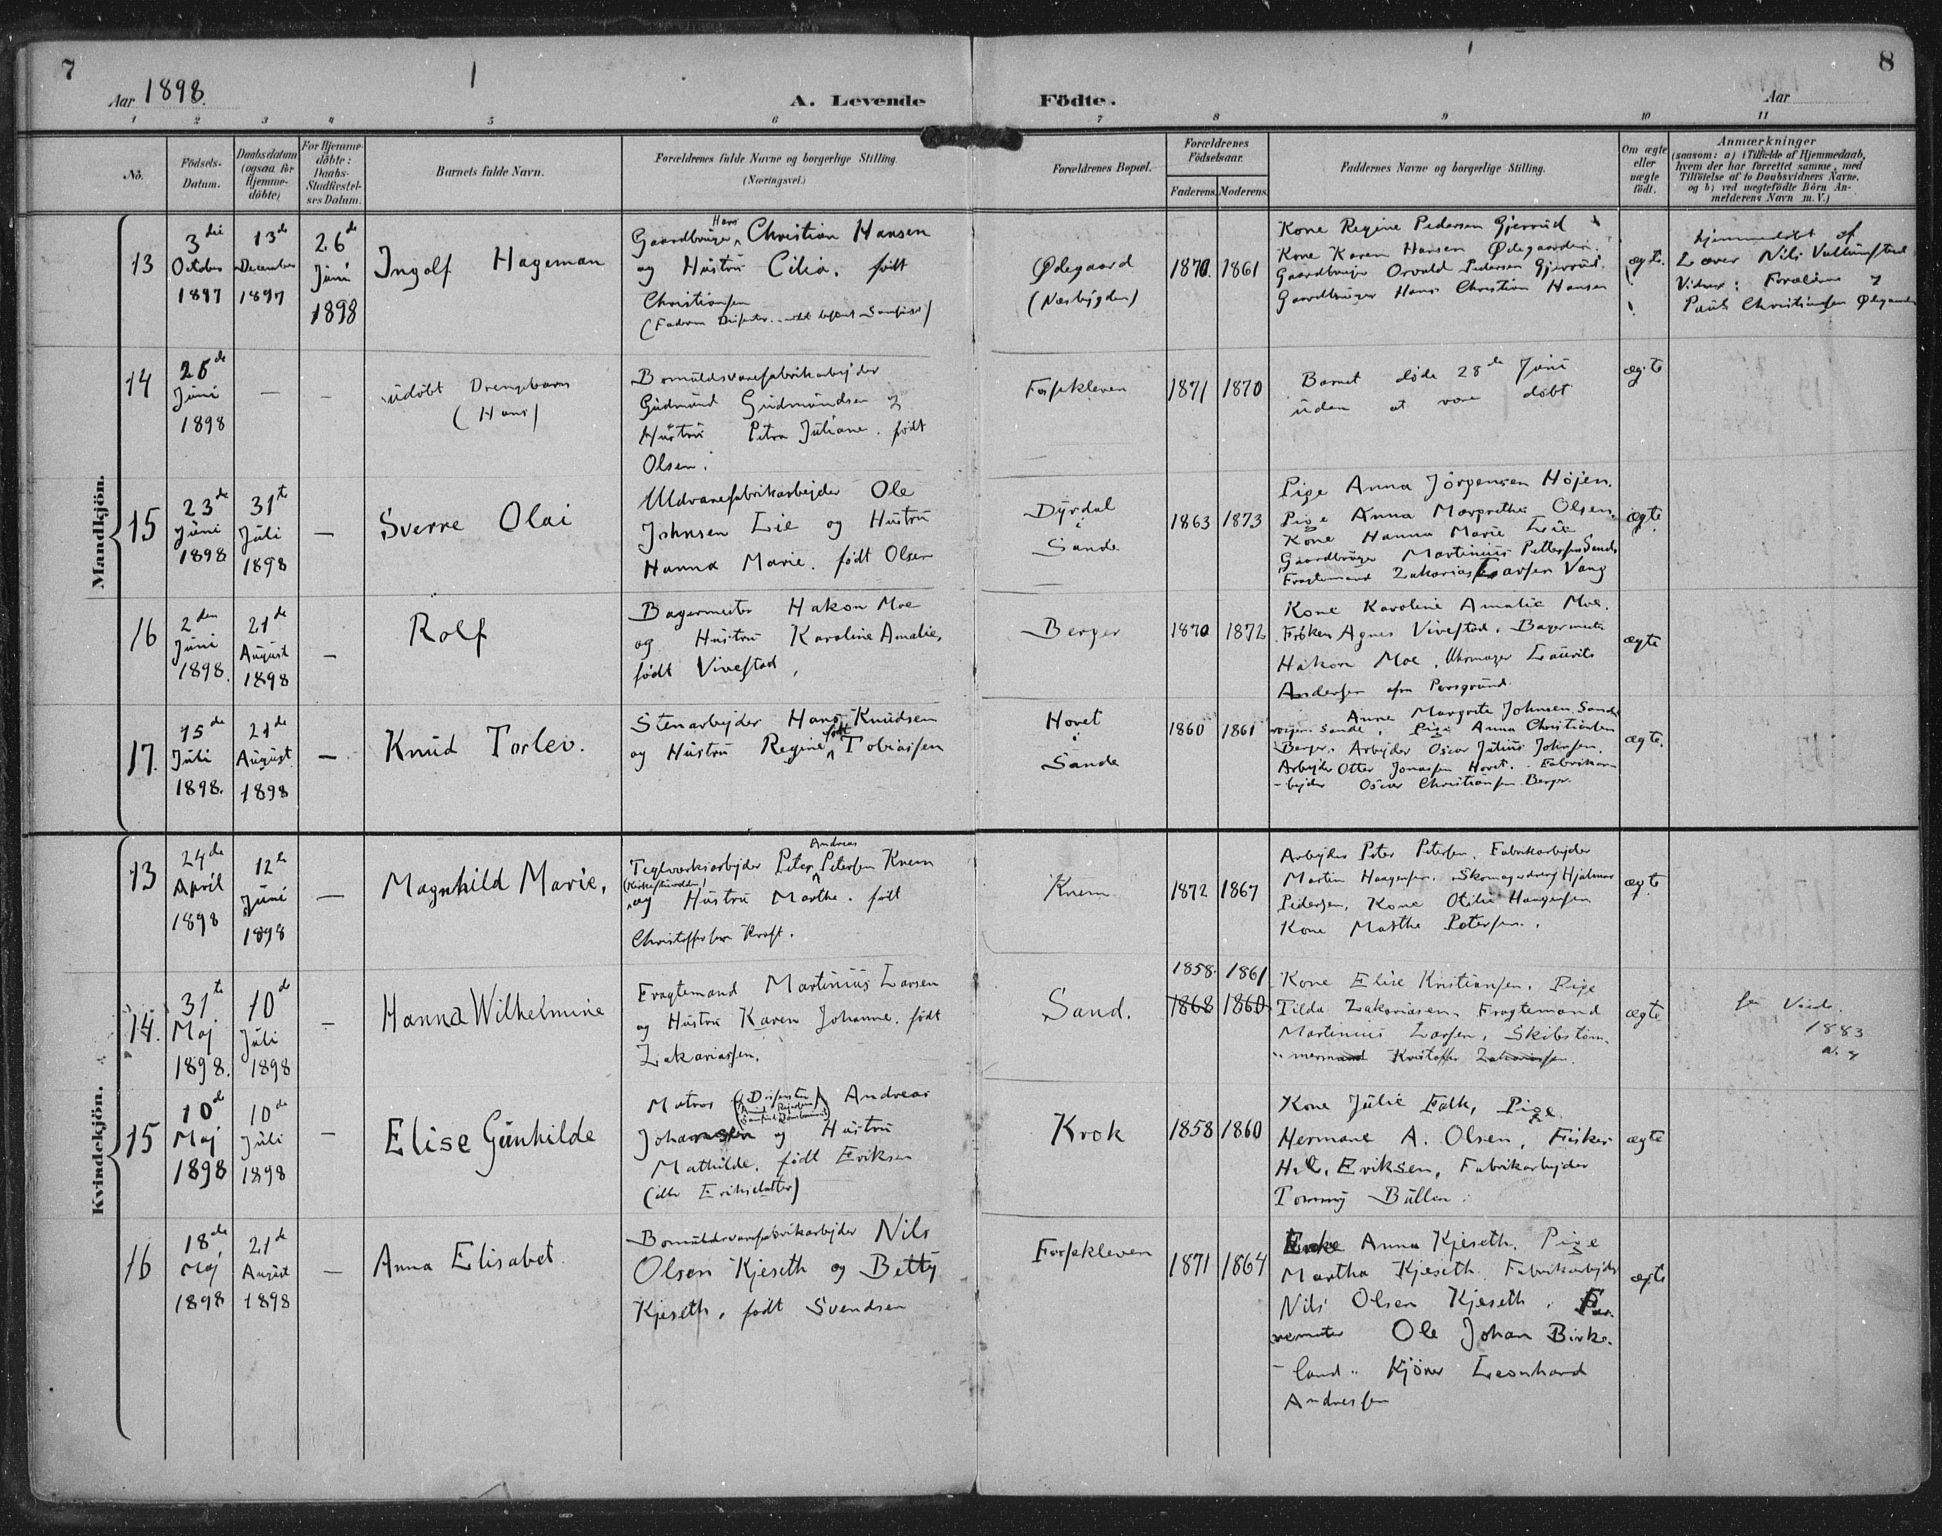 7
8
Aar 1898.
A. Levende
Fødte.
Aar
1 2 3 4 5 6 7 8 9 10 11
No.
Fødsels-Datum.
Daabsdatum (ogsaa for Hjemme-døbte)
For Hjemme-døbte: Daabs-Stadfæstel-ses Datum.
Barnets fulde Navn.
Forældrenes fulde Navne og borgerlige Stilling.
(Næringsvei.)
Forældrenes Bopæl.
Forældrenes Fødselsaar.
Faderens. Moderens.
Faddernes Navne og borgerlige Stilling.
Om ægte eller uægte født.
Anmærkninger
(saasom: a) i Tilfælde af Hjemmedaab,
hvem der har forrettet samme, med
Tilføielse af to Daabsvidners Navne,
og b) ved uægtefødte Børn An-
melderens Navn m. V.)
Mandkjön.
13
3die
October
1897
13de
December
1897
26de
Juni
1898
Ingolf Hageman
Gaardbruger Hans Christian Hansen
og Hustru Cilia. født
Christiansen
Ødegaard
(Næsbygden)
1870. 1861
Kone Regine Pedersen Gjerrud
Kone Karen Hansen Ødegaarden.
Gaardbruger Osvald Pedersen Gjerrud.
Gaardbruger Hans Christian Hansen
ægte.
hjemmedøbt af
Lærer Nils
Vidner: Forældrene og
Paul Christiansen Ødegaarden
14
26de
Juni
1898
—
—
udøbt Drengebarn
(Hans)
Bomuldsvarefabrikarbejder
Gudmund Gudmundsen og
Hustru Petra Juliane. født
Olsen.
Forskleven
1871 1870
Barnet døde 28de Juni
uden at være døbt
ægte
15
23de
Juni
1898
31te
Juli
1898
—
Sverre Olai
Uldvarefabrikarbejder Ole
Johnsen Lie og Hustru
Hanna Marie. født Olsen
Dyrdal
i
Sande
1863 1873
Pige Anna Jörgensen Höjen.
Pige Anna Margrethe Olsen.
Kone Hanna Marie Lie
Gaardbruger Martinius Pettersen Sande
Fragtemand Zakarias Larsen Vang
ægte.
16
2den
Juni
1898.
21de
August
1898
—
Rolf
Bagermester Hakon Moe
og Hustru Karoline Amalie,
født Vivestad,
Berger
1870 1872
Kone Karoline Amalie Moe.
Frøken Agnes Vivestad. Bagermester
Hakon Moe. Uhrmager Laurits
Andersen afra Porsgrund.
ægte
17.
15de
Juli
1898.
21de
August
1898
—
Knud Torlev.
Stenarbejder Hans Knudsen
og Hustru Regine født Tobiassen
Hovet
i
Sande
1860 1861
Anne Margrete Johnsen Sande
Sande, Pige Anna Christiansen
Berger. Arbejder Oscar Julius Johnsen.
Arbejder Otter Jonassen Hovet. Fabrikar-
-bejder Oscar Christiansen Berger.
ægte.
Kvindekjön.
13
24de
April
1898
12te
Juni
1898
—
Magnhild Marie,
Teglværksarbejder Peter Andreas Petersen Knem
og Hustru Marthe. født
Christoffersen Kroft.
Knem
1872 1867
Arbejder Peter Petersen. Fabrikarbejder
Martin Haagensen. Skomagerdreng Hjalmar
Pedersen, Kone Otilie Haagensen
Kone Marthe Petersen.
ægte
14.
31te
Maj
1898.
10de
Juli
1898
—
Hanna Wilhelmine
Fragtemand Martinius Larsen
og Hustru Karen Johanne. født
Zakariassen.
Sand.
1858. 1861
1868 1860
Kone Elise Kristiansen. Pige
Tilda Zakariasen. Fragtemand
Martinius Larsen. Skibstøm-
mermand Kristoffer Zakariassen.
ægte
1883
15
10de
Maj
1898
10de
Juli
1898
—
Elise Gunhilde
Matros (Dissenter) Andreas
Johannesen og Hustru
Mathilde. født Eriksen
(eller Eriksdatter)
Krok
1858 1860
Kone Julie Falk, Pige
Hermane A. Olsen, Fisker
H. C. Eriksen, Fabrikarbejder
Tommy Bullen.
ægte
16
18de
Maj
1898
21de
August
1898
—
Anna Elisabet
Bomuldsvarefabrikarbejder Nils
Olsen Kjeseth og Betty
Kjeseth, født Svendsen
Forskleven
1871 1864
Enke Anna Kjeseth. Pige
Martha Kjeseth. Fabrikarbejder
Nils Olsen Kjeseth. Far-
vemester Ole Johan Birke-
-land. Kjører Leonhard
Andressen
ægte